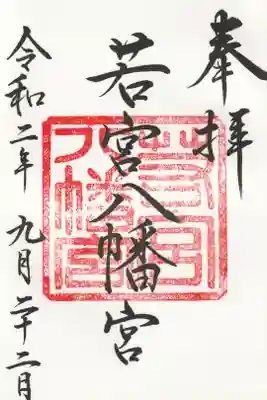 奉拝
若宮八幡宮
令和二年 九月二十二日
若宮
八幡宮